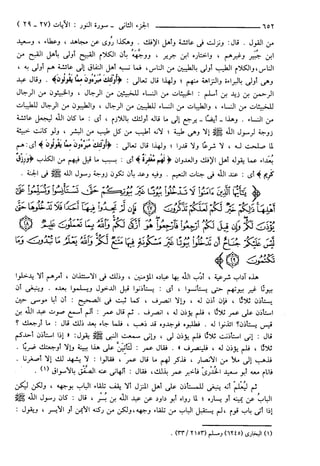 ٦٥٢ الجزء الثاني - سورة النور : الآيات (٢٧ - ٢٩)
من القول . قال: ونزلت في عائشة وأهل الإفك . وهكذا رُوي عن مجاهد ، وعطاء ، وسعيد
ابن جبير وغيرهم ، واختاره ابن جرير ، ووجهه بأن الكلام القبيح أولى بأهل القبح من
الناس، والكلام الطيب أولى بالطيبين من الناس، فما نسبه أهل النفاق إلى عائشة هم أولى به ،
وهي أولى بالبراءة والنزاهة منهم ، ولهذا قال تعالى : ﴿أُولَئِكَ مُبَرَّءُونَ مِمَّا يَقُولُونَ﴾ . وقال عبد
الرحمن بن زيد بن أسلم : الخبيثات من النساء للخبيثين من الرجال ، والخبيثون من الرجال
للخبيثات من النساء ، والطيبات من النساء للطيبين من الرجال ، والطيبون من الرجال للطيبات
من النساء . وهذا - أيضًا - يرجع إلى ما قاله أولئك باللازم ، أي : ما كان الله ليجعل عائشة
زوجة لرسول الله ﷺ إلا وهي طيبة ؛ لأنه أطيب من كل طيب من البشر ، ولو كانت خبيثة
لما صلحت له ، لا شرعًا ولا قدرا ؛ ولهذا قال تعالى : ﴿أُولَئِكَ مُبَرَّءُونَ مِمَّا يَقُولُونَ﴾ أي : هم
بُعَداء عما يقوله أهل الإفك والعدوان ﴿لَهُمْ مَغْفِرَةٌ﴾ أي : بسبب ما قيل فيهم من الكذب ﴿وَرِزْقٌ
كَرِيمٌ﴾ أي : عند الله في جنات النعيم . وفيه وعد بأن تكون زوجة رسول الله ﷺ في الجنة .
هذه آداب شرعية ، أدّب الله بها عباده المؤمنين ، وذلك في الاستئذان ، أمرهم ألا يدخلوا
بيوتًا غير بيوتهم حتى يستأنسوا ، أي : يستأذنوا قبل الدخول ويسلموا بعده . وينبغي أن
يستأذن ثلاثًا ، فإن أذن له ، وإلا انصرف ، كما ثبت في الصحيح : أن أبا موسى حين
استأذن على عمر ثلاثًا ، فلم يؤذن له ، انصرف . ثم قال عمر : ألم أسمع صوت عبد الله بن
قيس يستأذن؟ ائذنوا له . فطلبوه فوجدوه قد ذهب ، فلما جاء بعد ذلك قال : ما أرجعك ؟
قال : إني استأذنت ثلاثًا فلم يؤذن لي ، وإني سمعت النبي ﷺ يقول: «إذا استأذن أحدكم
ثلاثًا ، فلم يؤذن له ، فلينصرف» . فقال عمر : لتأتينّي على هذا ببينة وإلا أوجعتك ضربًا .
فذهب إلى ملأ من الأنصار ، فذكر لهم ما قال عمر ، فقالوا : لا يشهد لك إلا أصغرنا .
فقام معه أبو سعيد الخدريّ فأخبر عمر بذلك، فقال : ألهاني عنه الصفق بالأسواق (١) .
ثم ليُعلم أنه ينبغي للمستأذن على أهل المنزل ألا يقف تلقاء الباب بوجهه ، ولكن ليكن
الباب عن يمينه أو يساره ؛ لما رواه أبو داود عن عبد الله بن بُسر ، قال : كان رسول الله ﷺ
إذا أتى باب قوم ، لم يستقبل الباب من تلقاء وجهه، ولكن من ركنه الأيمن أو الأيسر ، ويقول :
(١) البخاري (٦٢٤٥) ومسلم (٢١٥٣ / ٣٣) .